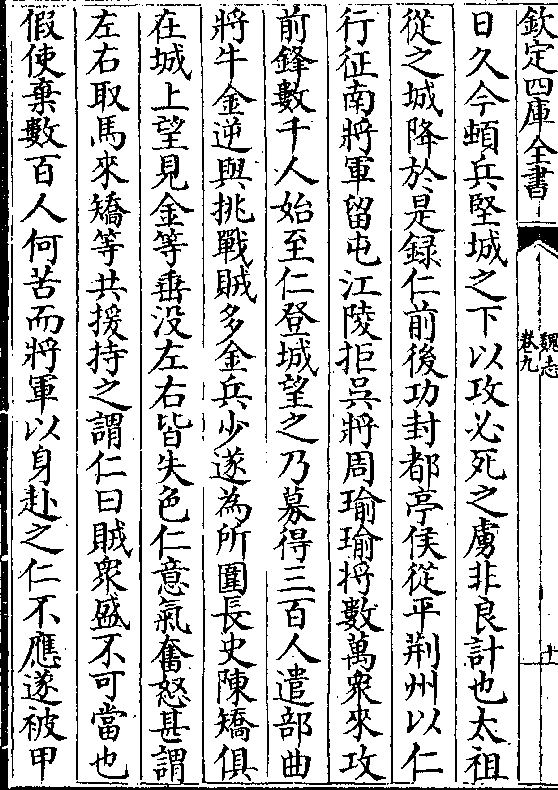 欽定四庫全書
魏志
卷九
十
日久今頓兵堅城之下以攻必死之虜非良計也太祖
從之城降於是錄仁前後功封都亭侯從平荆州以仁
行征南將軍留屯江陵拒吳將周瑜瑜將數萬衆來攻
前鋒數千人始至仁登城望之乃募得三百人遣部曲
將牛金逆與挑戰賊多金兵少遂為所圍長史陳矯俱
在城上望見金等垂没左右皆失色仁意氣奮怒甚謂
左右取馬來矯等共援持之謂仁曰賊衆盛不可當也
假使棄數百人何苦而將軍以身赴之仁不應遂被甲